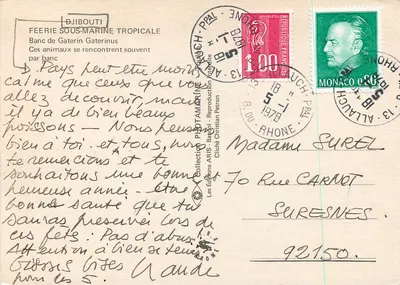 DJIBOUTI
FEERIE SOUS-MARINE TROPICALE
Banc de Gaterin Gaterinus
Ces animaux se rencontrent souvent
par banc
D. Pays peut être moins
calme que ceux que vous
allez découvrir, mais
il y a de bien beaux
poissons - Nous pensons
bien à toi et tous, nous
te remercions et te
souhaitons une bonne et
heureuse année - et une
bonne santé que tu
sauras préserver lors de
ces fêtes : Pas d'abus!
Attention à bien se tenir
Grosses bises
pour les 5.
Collection PROTAMENE
Les Editions ARIS - Reproduction
Cliché Christian Perron
13 ALLAUCH PPAL
B. DU RHONE
5 -1
1978
1.00
FRANCE
MONACO 0,80
Madame SUREL
70 RUE CARNOT
SURESNES
92150.